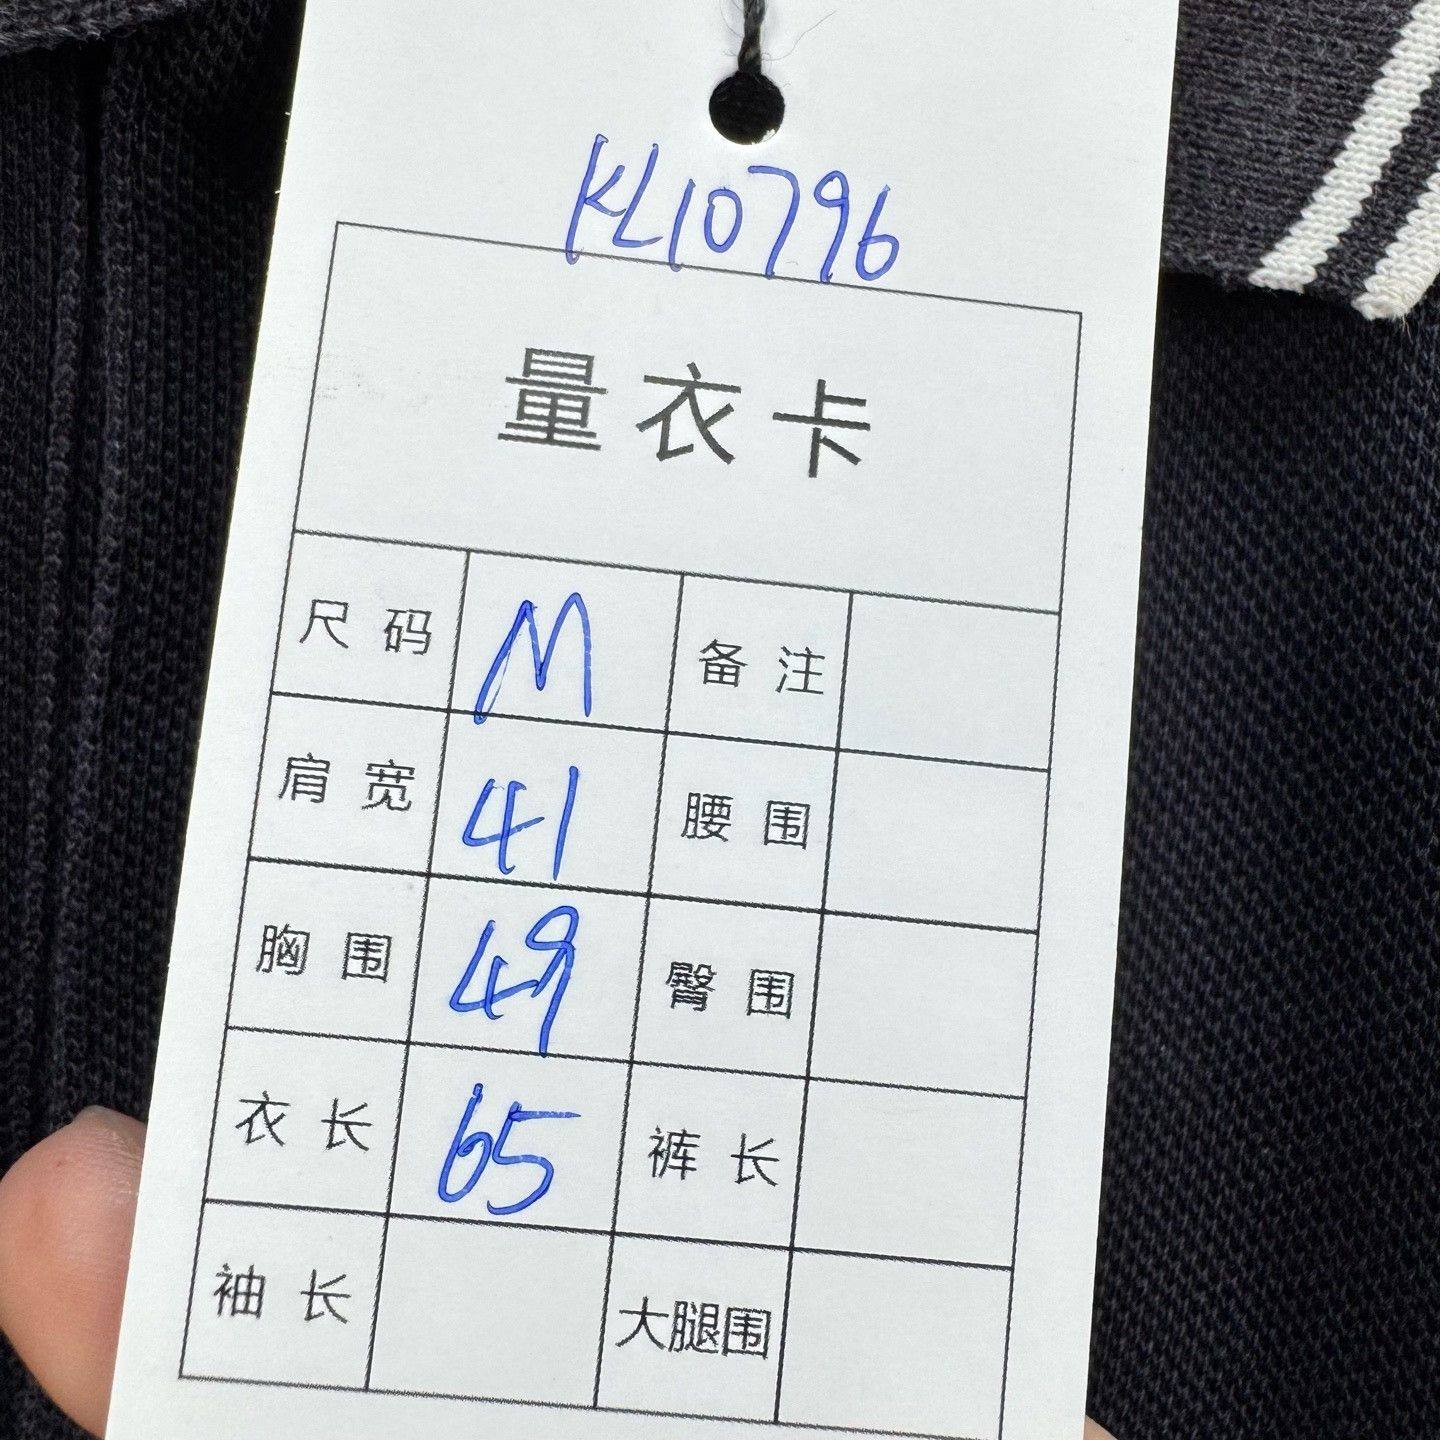 KL10796
量衣卡
尺码 M 备注
肩宽 41 腰围
胸围 49 臀围
衣长 65 裤长
袖长 大腿围